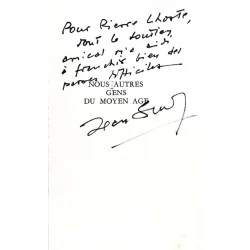 Pour Pierre Lhoste,
dont le soutien
amical m'a aidé
à franchir bien des
passes difficiles
NOUS AUTRES
GENS
DU MOYEN AGE
Jean